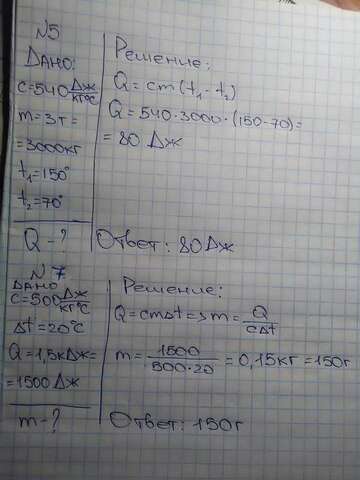 №5
Дано:
c=540 Дж/кг°С
m=3т=
=3000кг
t₁=150°
t₂=70°
Q-?
Решение:
Q=cm(t₁-t₂)
Q=540·3000·(150-70)=
=80 Дж
Ответ: 80Дж
№7
Дано
c=500 Дж/кг°С
Δt=20°С
Q=1,5кДж=
=1500Дж
m-?
Решение:
Q=cmΔt=>m=Q/cΔt
m=1500/500·20=0,15кг=150г
Ответ: 150г